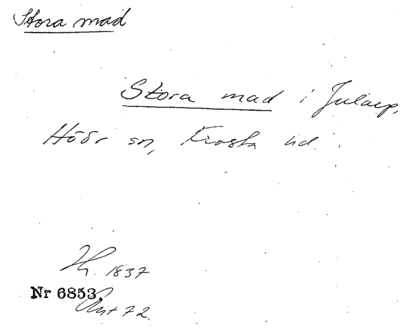 Stora mad
Stora mad i Jularp,
Höör sn, Frosta hd.
1837
Nr 6853.
72